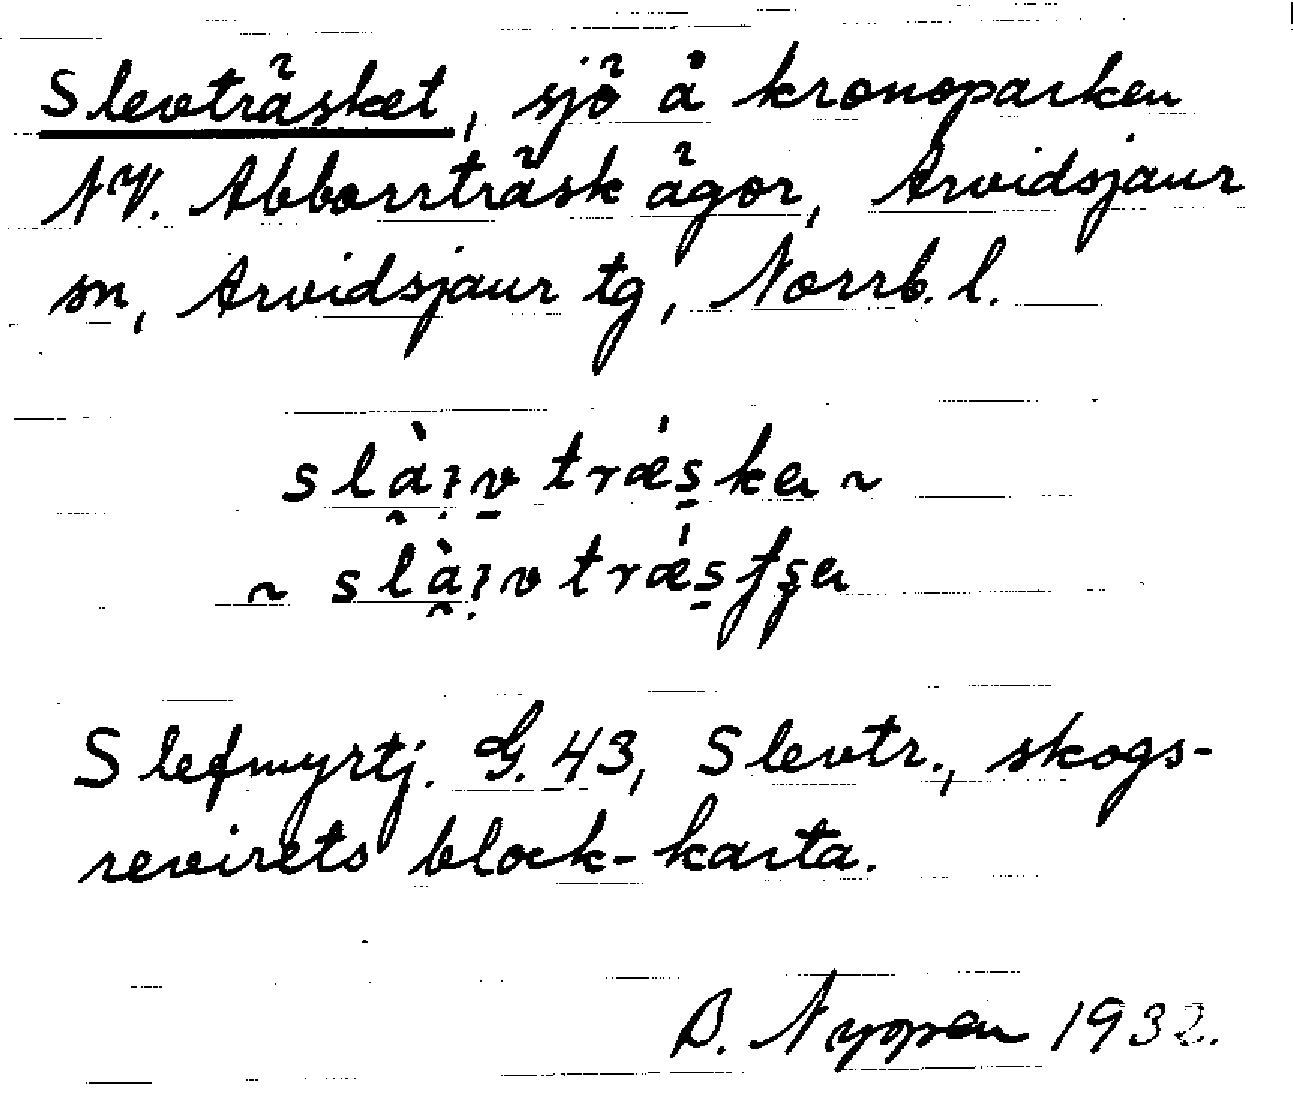 Slevträsket, sjö å kronoparken
NV. Abborrträsk ägor, Arvidsjaur
sn, Arvidsjaur tg, Norrb. l.
slàıv træ̍ska ~
~ slàıv træ̍sfşa
Slefmyrtj. G. 43, Slevtr., skogs-
revirets block-karta.
B. Nyppen 1932.